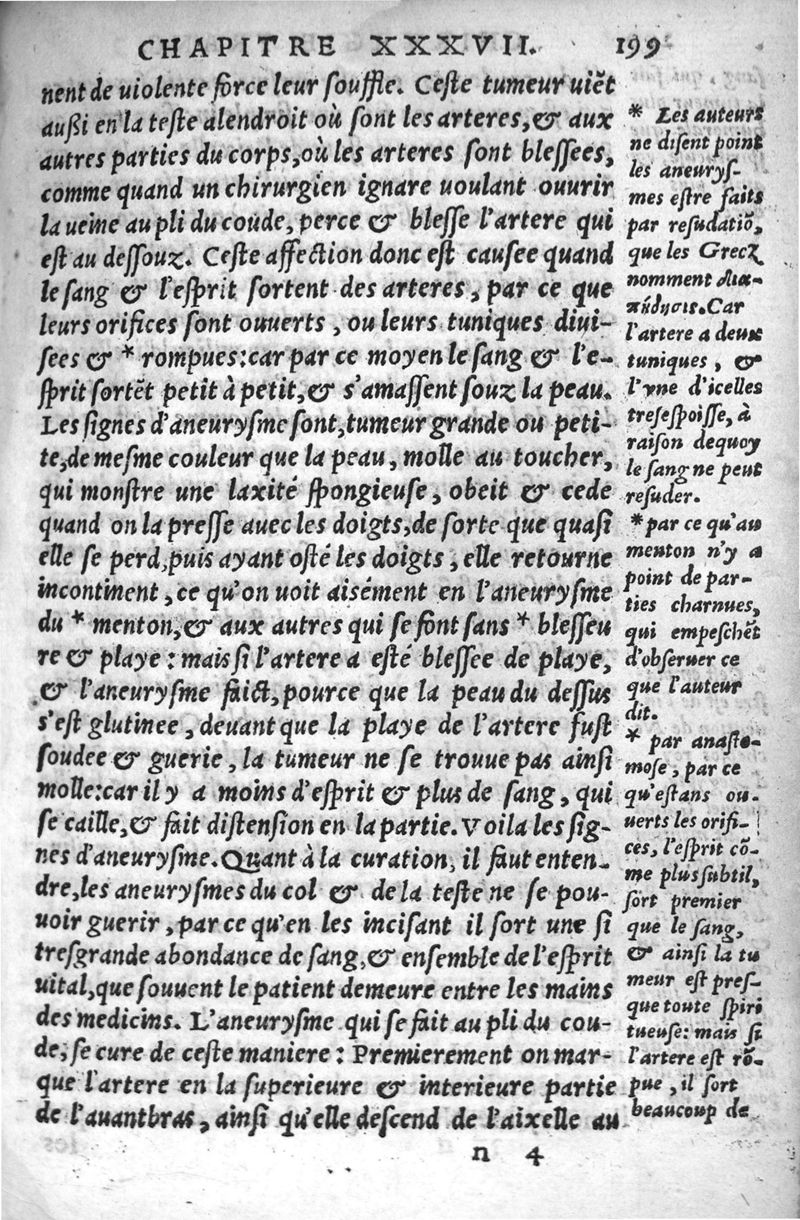 CHAPITRE XXXVII. 199
nent de uiolente force leur souffle. Ceste tumeur uiẽt
außi en la teste alendroit où sont les arteres, & aux
autres parties du corps, où les arteres sont blessees,
comme quand un chirurgien ignare uoulant ouurir
la ueine au pli du coude, perce & blesse l'artere qui
est au dessouz. Ceste affection donc est causee quand
le sang & l'esprit sortent des arteres, par ce que
leurs orifices sont ouuerts, ou leurs tuniques diui-
sees & * rompues: car par ce moyen le sang & l'e-
sprit sortẽt petit à petit, & s'amassent souz la peau.
Les signes d'aneurysme sont, tumeur grande ou peti-
te, de mesme couleur que la peau, molle au toucher,
qui monstre une laxité spongieuse, obeit & cede
quand on la presse auec les doigts, de sorte que quasi
elle se perd, puis ayant osté les doigts, elle retourne
incontinent, ce qu'on uoit aisément en l'aneurysme
du * menton, & aux autres qui se font sans * blesseu
re & playe: mais si l'artere a esté blessee de playe,
& l'aneurysme faict, pource que la peau du dessus
s'est glutinee, deuant que la playe de l'artere fust
soudee & guerie, la tumeur ne se trouue pas ainsi
molle: car il y a moins d'esprit & plus de sang, qui
se caille, & fait distension en la partie. Voila les sig-
nes d'aneurysme. Quant à la curation, il faut enten-
dre, les aneurysmes du col & de la teste ne se pou-
uoir guerir, par ce qu'en les incisant il sort une si
tresgrande abondance de sang, & ensemble de l'esprit
uital, que souuent le patient demeure entre les mains
des medicins. L'aneurysme qui se fait au pli du cou-
de, se cure de ceste maniere: Premierement on mar-
que l'artere en la superieure & interieure partie
de l'auantbras, ainsi qu'elle descend de l'aixelle au
* Les auteurs
ne disent point
les aneurys-
mes estre faits
par resudatiõ,
que les Grecz
nomment διa-
πήδησις. Car
l'artere a deux
tuniques, &
l'vne d'icelles
tresespoisse, à
raison dequoy
le sang ne peut
resuder.
* par ce qu'au
menton n'y a
point de par-
ties charnues,
qui empeschẽt
d'obseruer ce
que l'auteur
dit.
* par anasto-
mose, par ce
qu'estans ou-
uerts les orifi-
ces, l'esprit cõ-
me plus subtil,
sort premier
que le sang,
& ainsi la tu
meur est pres-
que toute spiri
tueuse: mais si
l'artere est rõ-
pue, il sort
beaucoup de
n 4